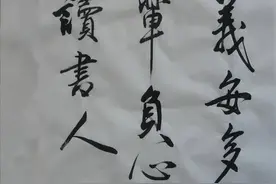 義每多
輩負心
讀書人